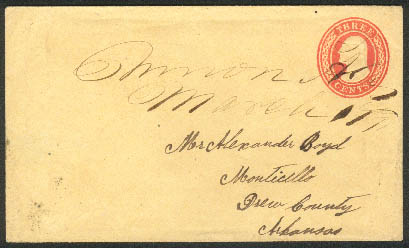 THREE
CENTS
March
Mr Alexander Boyd
Monticello
Drew County
Arkansas